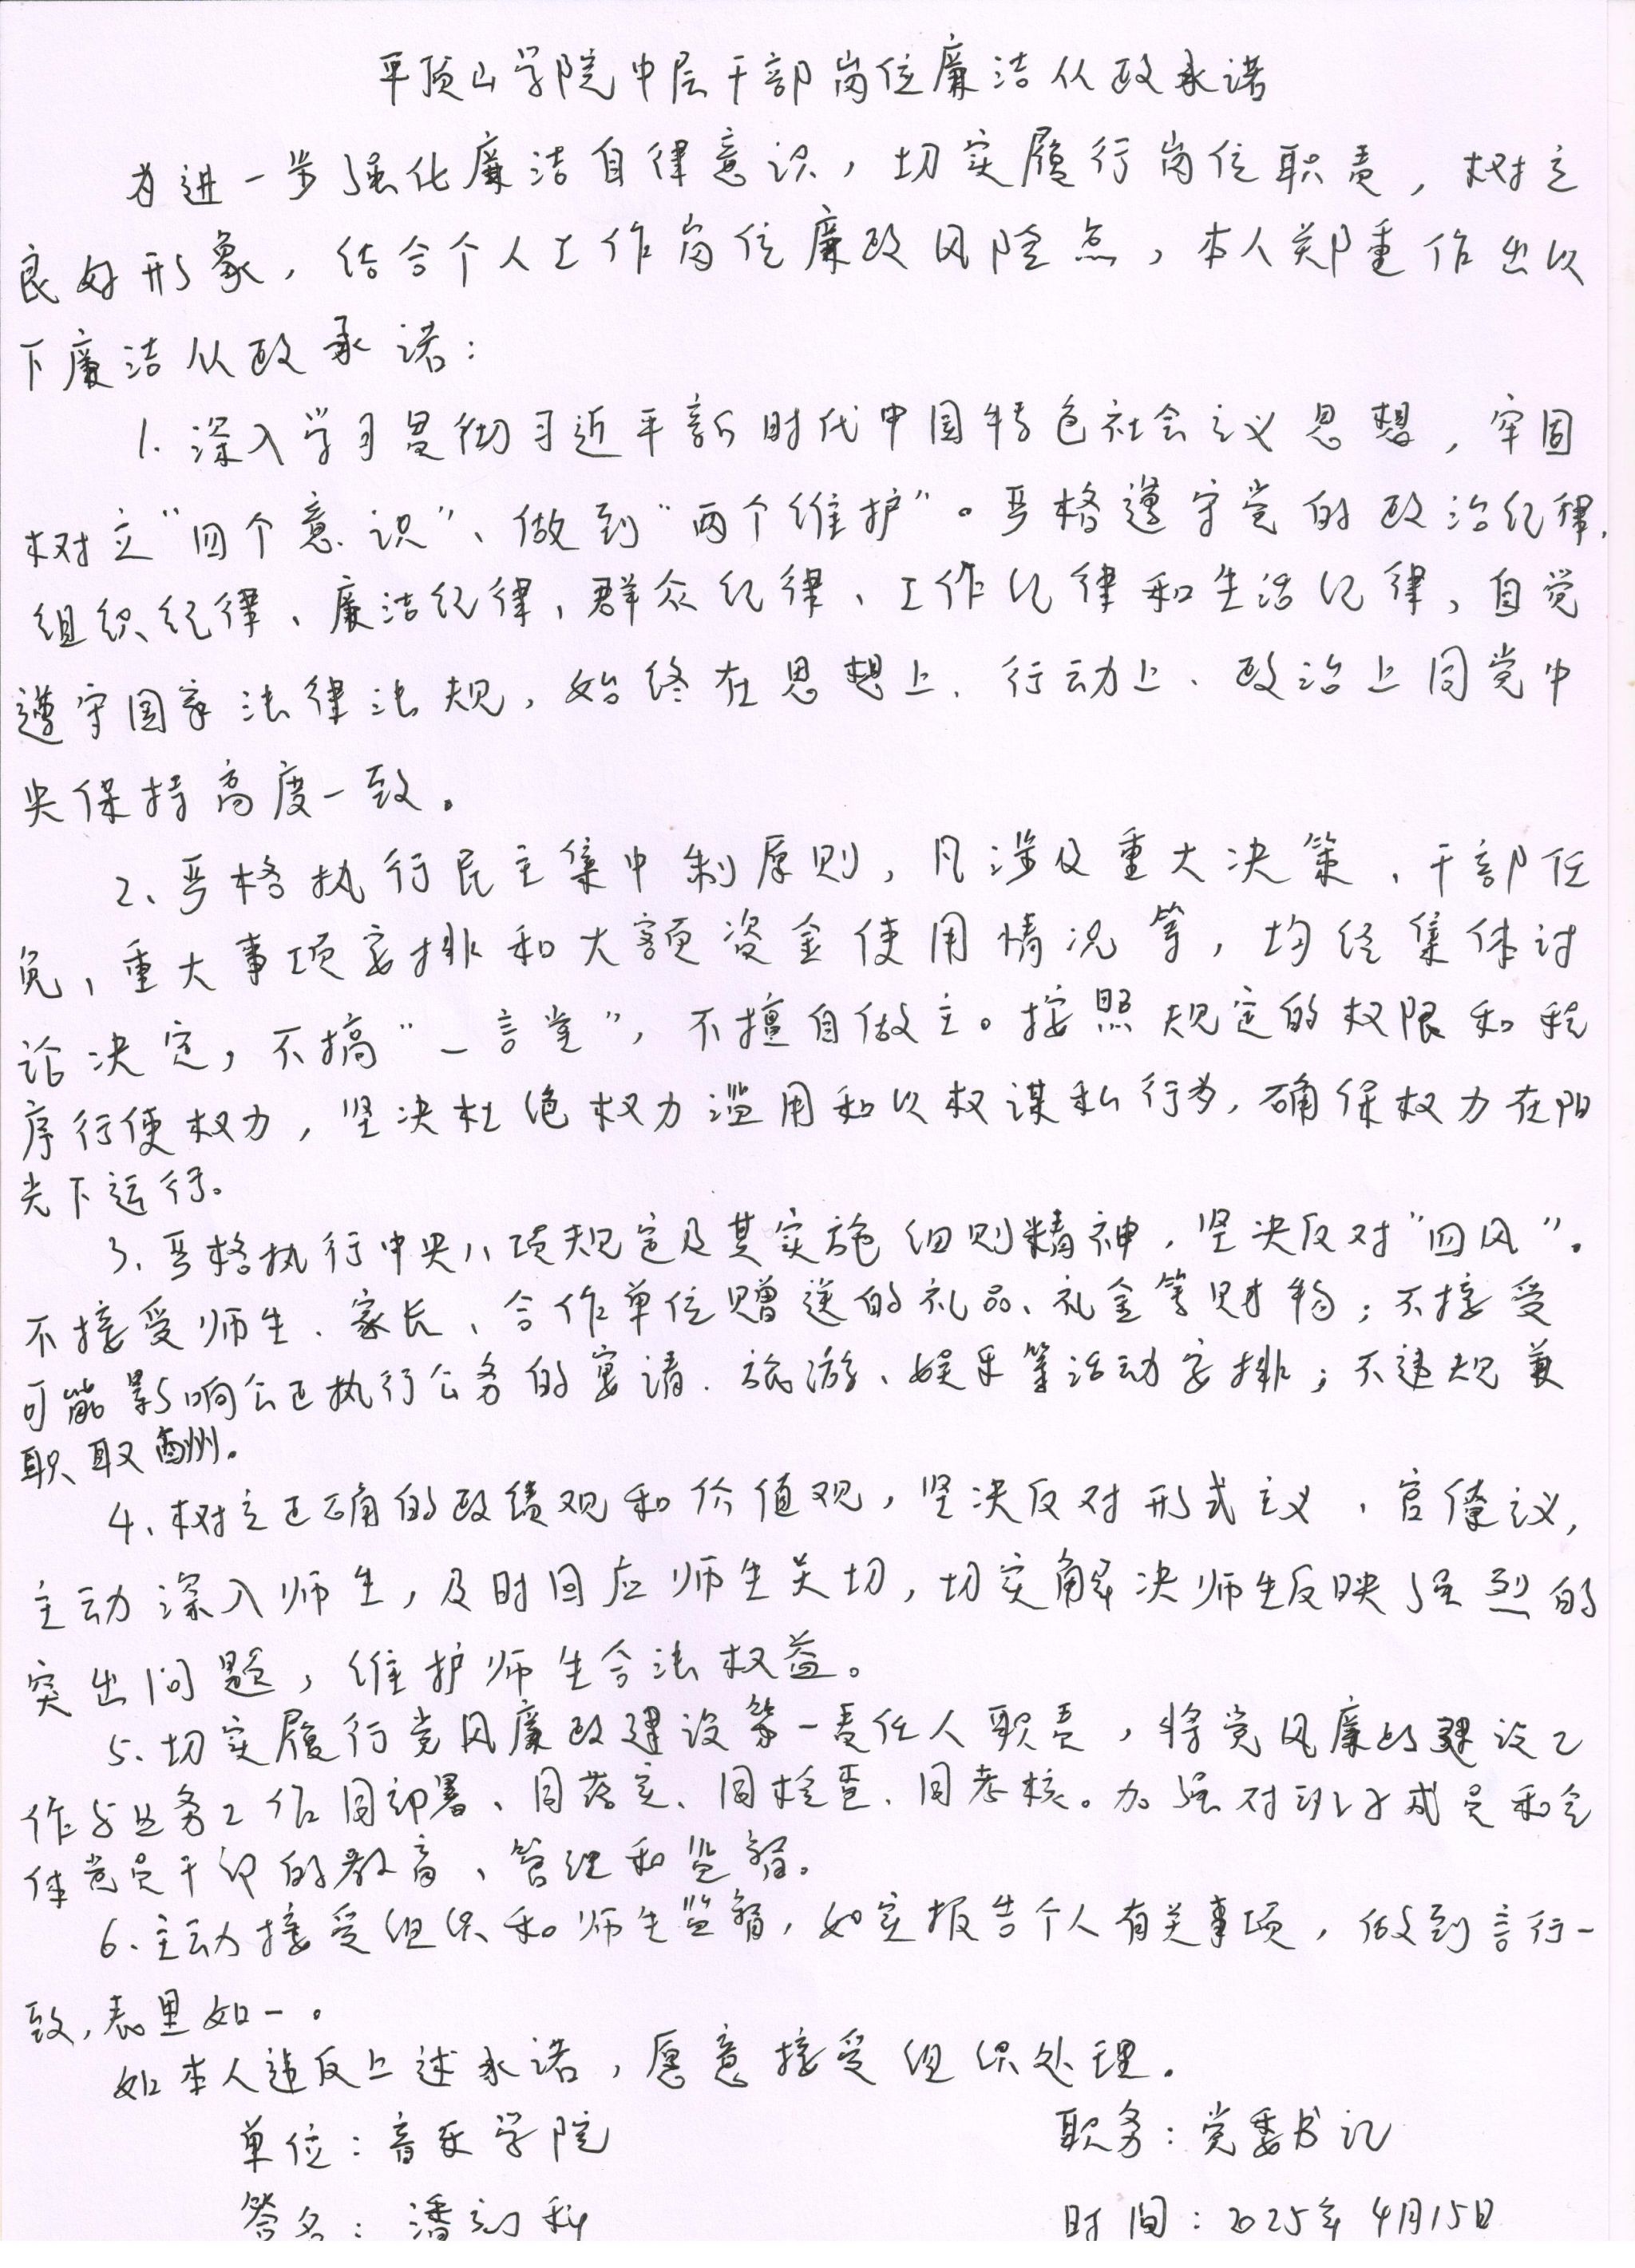 平顶山学院中层干部岗位廉洁从政承诺
为进一步强化廉洁自律意识，切实履行岗位职责，树立
良好形象，结合个人工作岗位廉政风险点，本人郑重作出以
下廉洁从政承诺：
1.深入学习贯彻习近平新时代中国特色社会主义思想，牢固
树立“四个意识”、做到“两个维护”。严格遵守党的政治纪律、
组织纪律、廉洁纪律、群众纪律、工作纪律和生活纪律，自觉
遵守国家法律法规，始终在思想上、行动上、政治上同党中
央保持高度一致。
2、严格执行民主集中制原则，凡涉及重大决策、干部任
免、重大事项安排和大额资金使用情况等，均经集体讨
论决定，不搞“一言堂”，不擅自做主。按照规定的权限和程
序行使权力，坚决杜绝权力滥用和以权谋私行为，确保权力在阳
光下运行。
3、严格执行中央八项规定及其实施细则精神，坚决反对“四风”。
不接受师生、家长、合作单位赠送的礼品、礼金等财物；不接受
可能影响公正执行公务的宴请、旅游、娱乐等活动安排；不违规兼
职取酬。
4、树立正确的政绩观和价值观，坚决反对形式主义、官僚主义，
主动深入师生，及时回应师生关切，切实解决师生反映强烈的
突出问题，维护师生合法权益。
5、切实履行党风廉政建设第一责任人职责，将党风廉政建设工
作与业务工作同部署、同落实、同检查、同考核。加强对班子成员和全
体党员干部的教育、管理和监督。
6、主动接受组织和师生监督，如实报告个人有关事项，做到言行一
致，表里如一。
如本人违反上述承诺，愿意接受组织处理。
单位：音乐学院 职务：党委书记
签名：潘 科 时间：2025年4月15日